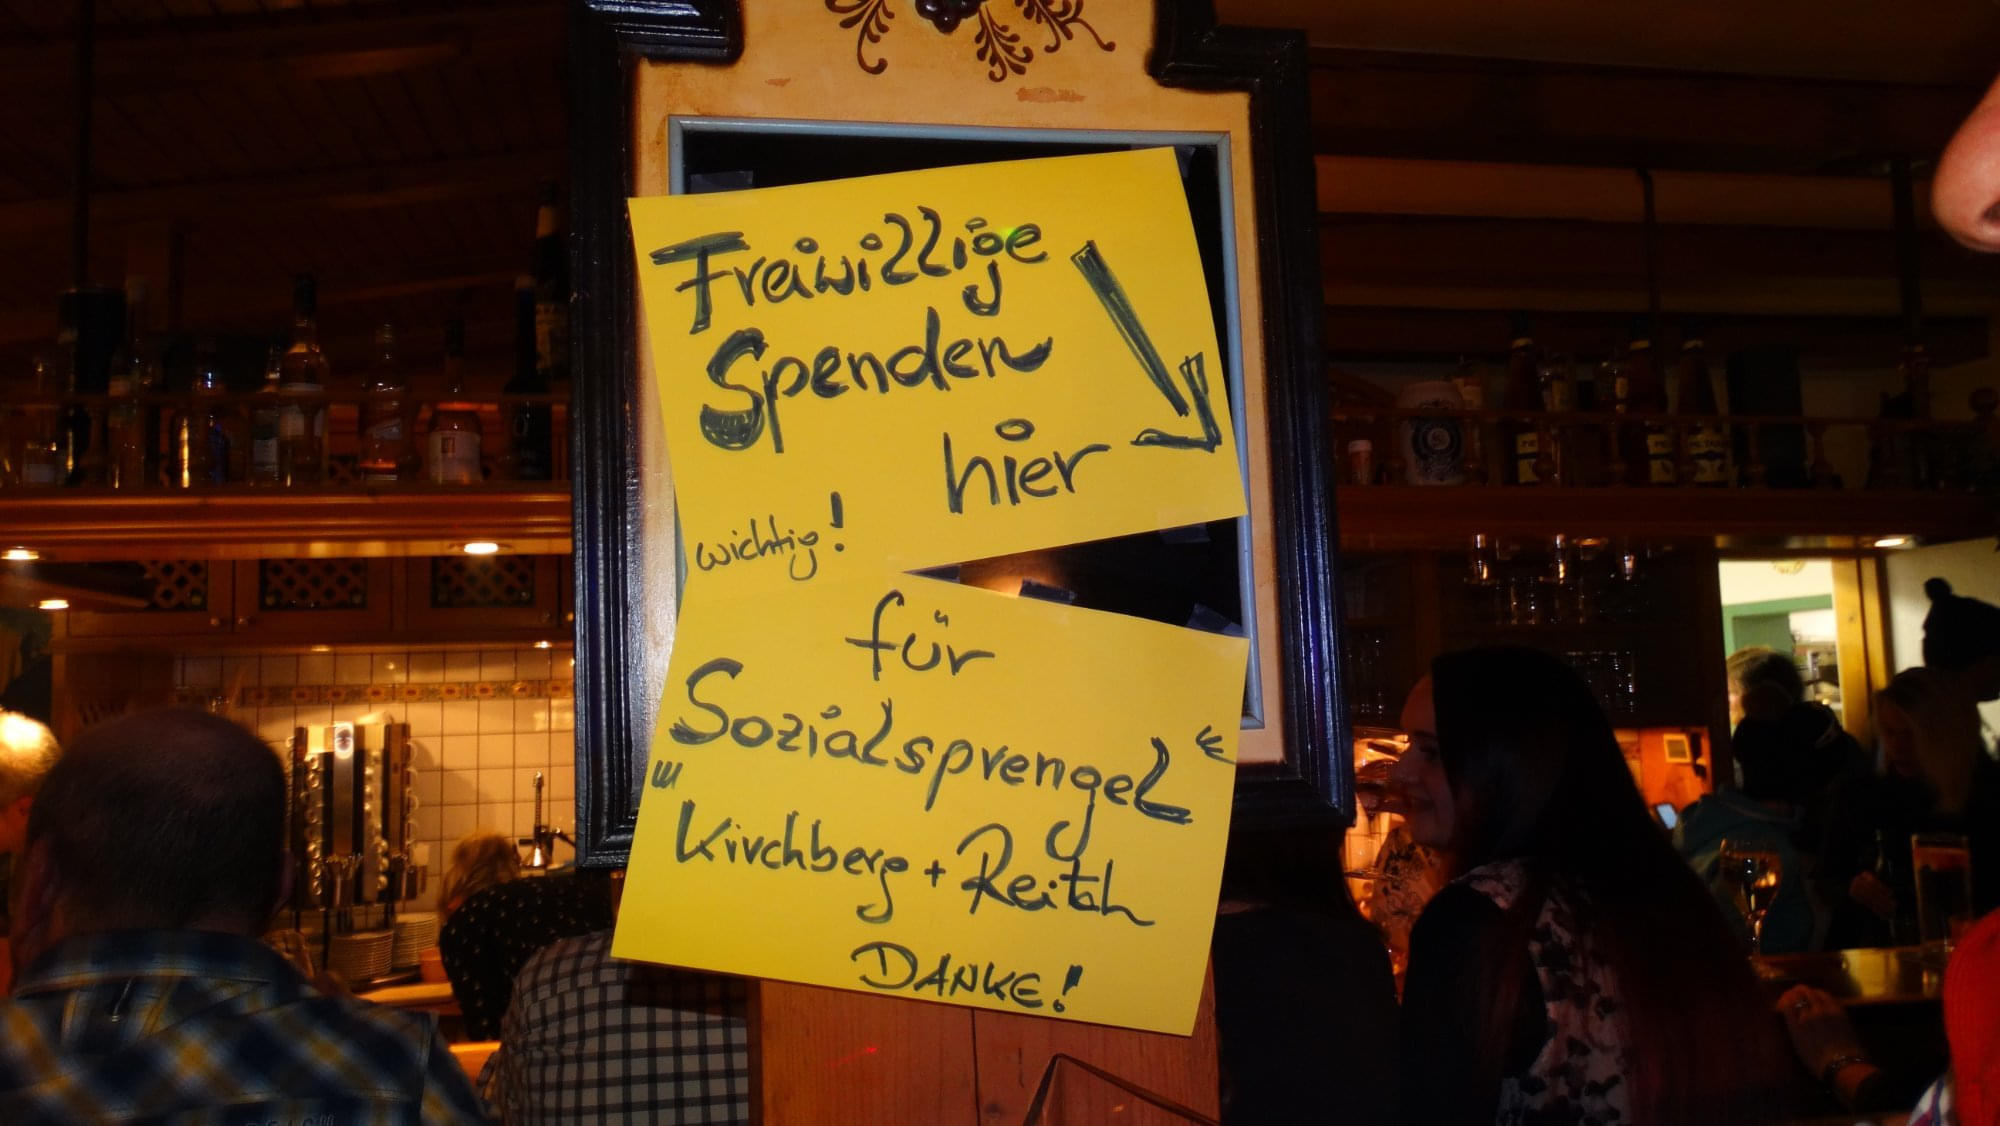 Freiwillige
Spenden
hier
wichtig!
für
Sozialsprengel"
"Kirchberg + Reith
DANKE!